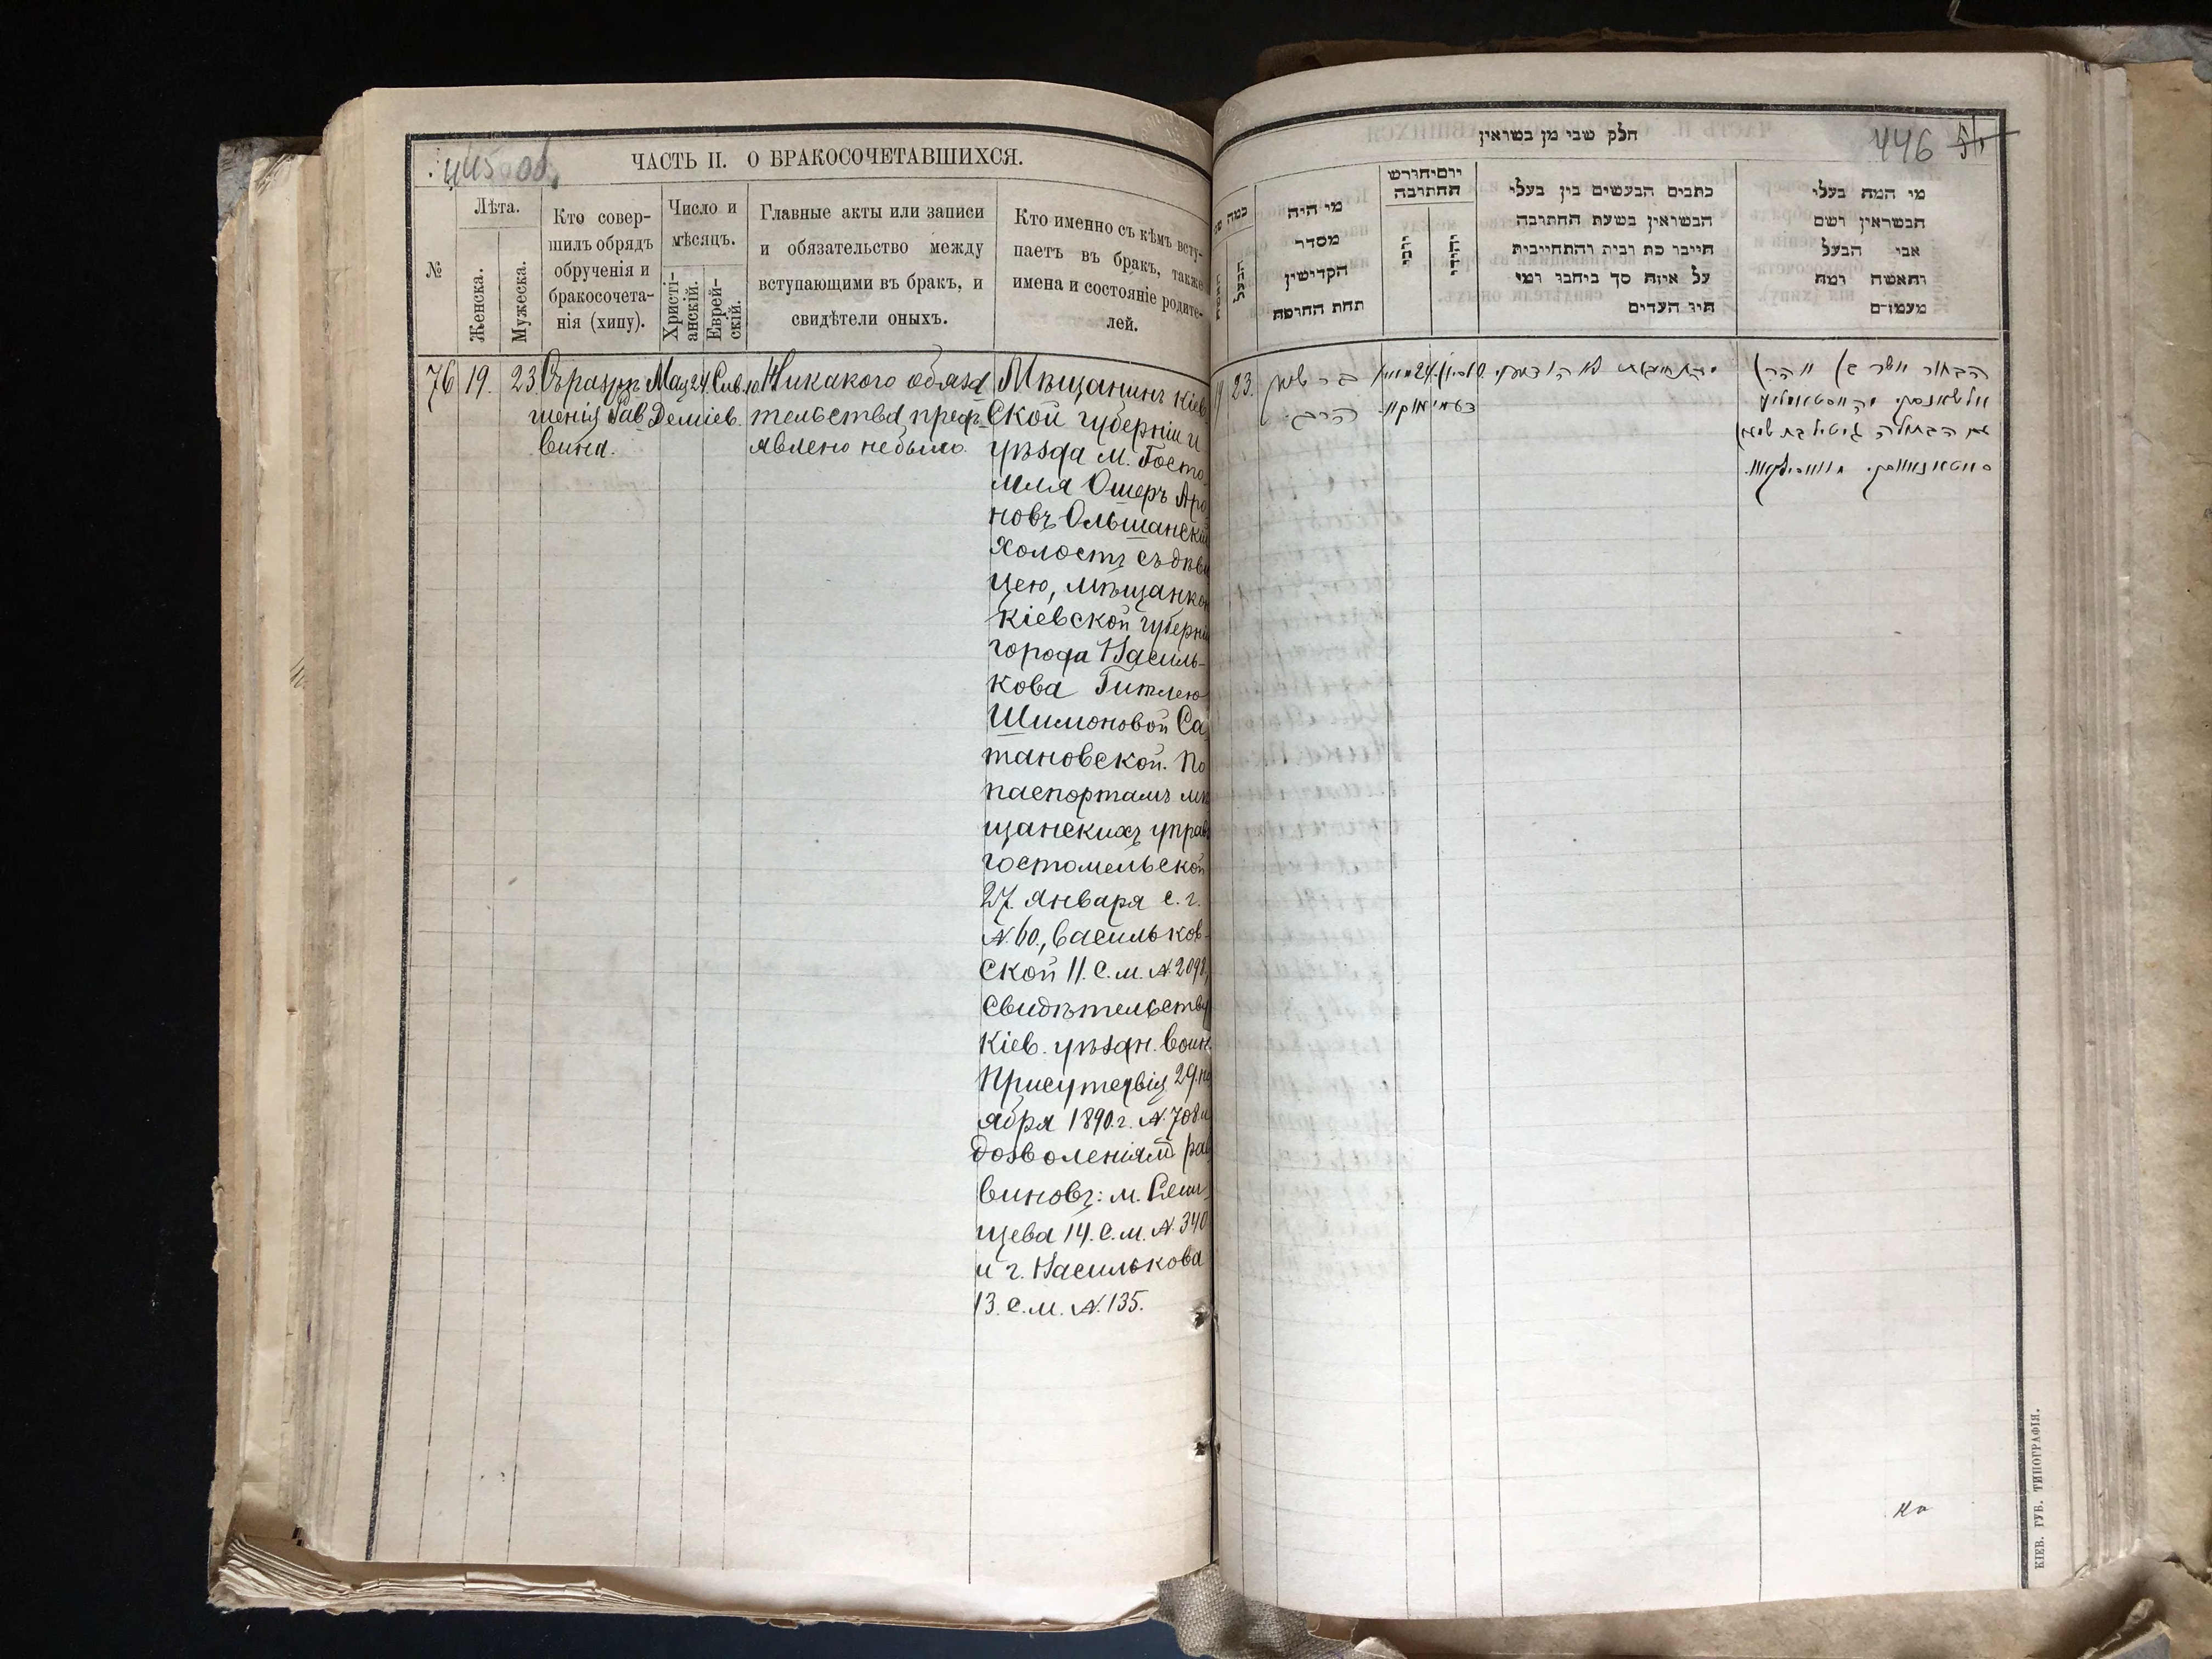 445 об.
ЧАСТЬ II. О БРАКОСОЧЕТАВШИХСЯ.
№
Лѣта.
Женска.
Мужеска.
Кто совер-
шилъ обрядъ
обрученія и
бракосочета-
нія (хипу).
Число и
мѣсяцъ.
Христі-
анскій.
Еврей-
скій.
Главные акты или записи
и обязательство между
вступающими въ бракъ, и
свидѣтели оныхъ.
Кто именно съ кѣмъ всту-
паетъ въ бракъ, также
имена и состояніе родите-
лей.
76
19.
23.
Съ разрѣ
шенія Рав
вина.
Мая 24
Деміев.
Сив. 10
Никакого обяза
тельства предъ
явлено небыло.
Мѣщанинъ Кіев
ской губерніи и
уѣзда м. Госто
мля Ошеръ Аро
новъ Ольшанскій
холостъ съ дѣви
цею, мѣщанкой
Кіевской губерніи
города Василь-
кова Гитлею
Шимоновой Са
тановской. По
паспортамъ мѣ
щанскихъ управ
Гостомельской
27. Января с. г.
N. 60., Васильков-
ской 11. С. м. N. 2098,
Свидѣтельству
Кіев. уѣздн. воин.
Присутствія 29. но
ября 1890 г. N. 708 и
дозволеніямъ рав
виновъ: м.
14. С. м. N. 340
и г. Василькова
13. С. м. N. 135.
446
חלק שני מן נשואין
מי היה
מסדר
הקדישין
תחת החופה
יום וחודש
החתונה
כתבים הנעשים בין בעלי
הנשואין בשעת החתונה
היינו כת ובית והתחייבות
על איזה סך ביחבו ומי
היו העדים
מי המה בעלי
הנשואין ושם
אבי הבעל
והאשה ומה
מעמדם
19
23.
24
10.
הבחור אשר בן אהרן
КІЕВ. ГУБ. ТИПОГРАФІЯ.